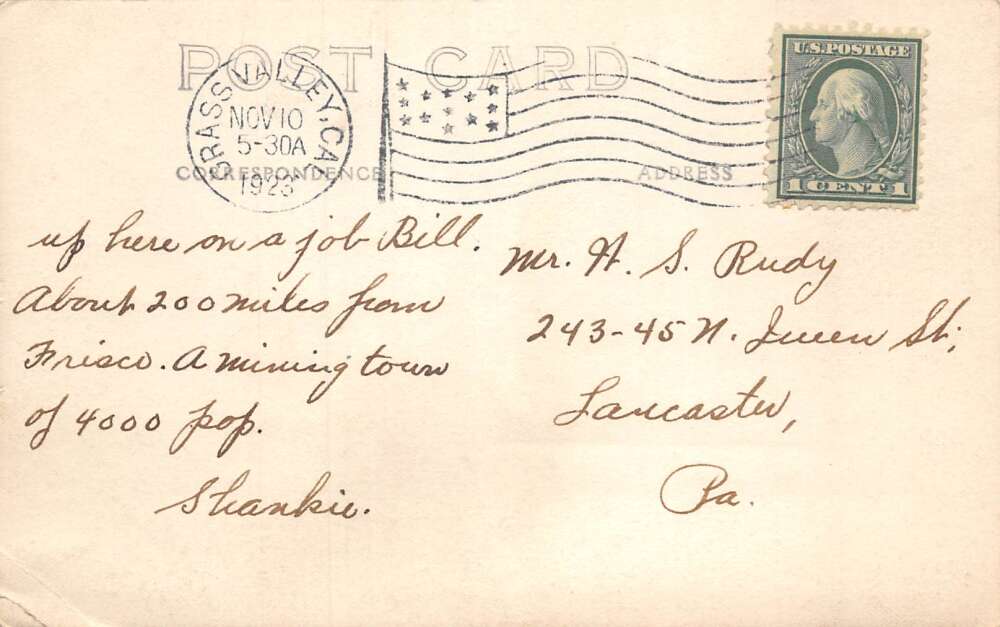 POST CARD
GRASS VALLEY, CAL
NOV 10
5-30A
1923
U.S. POSTAGE
1 CENT 1
CORRESPONDENCE
ADDRESS
up here on a job Bill.
About 200 miles from
Frisco. A mining town
of 4000 pop.
Shankie.
Mr. H. S. Rudy
243-45 N. Queen St,
Lancaster,
Pa.